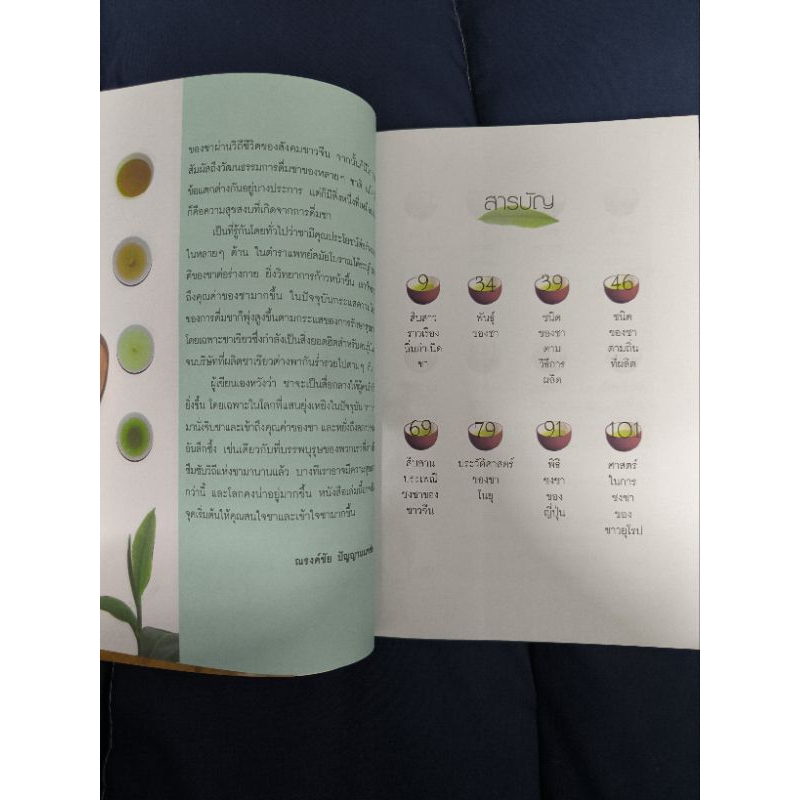 ของชาผ่านวิถีชีวิตของสังคมชาวจีน จากนั้น
สัมผัสถึงวัฒนธรรมการดื่มชาของหลายๆ ชาติ
ข้อแตกต่างกันอยู่บางประการ แต่ก็มีสิ่งหนึ่งที่
ก็คือความสุขสงบที่เกิดจากการดื่มชา
เป็นที่รู้กันโดยทั่วไปว่าชามีคุณประโยชน์
ในหลายๆ ด้าน ในตำราแพทย์สมัยโบราณได้
ดีของชาต่อร่างกาย ยิ่งวิทยาการก้าวหน้าขึ้น
ถึงคุณค่าของชามากขึ้น ในปัจจุบันกระแสความ
ของการดื่มชาก็พุ่งสูงขึ้นตามกระแสของการรักษา
โดยเฉพาะชาเขียวซึ่งกำลังเป็นสิ่งยอดฮิตสำหรับ
จนบริษัทที่ผลิตชาเขียวต่างพากันร่ำรวยไปตามๆ กัน
ผู้เขียนเองหวังว่า ชาจะเป็นสื่อกลางให้
ยิ่งขึ้น โดยเฉพาะในโลกที่แสนยุ่งเหยิงในปัจจุบัน
มานั่งจิบชาและเข้าถึงคุณค่าของชา และหยั่งถึง
อันลึกซึ้ง เช่นเดียวกับที่บรรพบุรุษของพวกเรา
ซึมซับวิถีแห่งชามานานแล้ว บางทีเราอาจมีความ
กว่านี้ และโลกคงน่าอยู่มากขึ้น หนังสือเล่มนี้
จุดเริ่มต้นให้คุณสนใจชาและเข้าใจชามากขึ้น
ณรงค์ชัย
สารบัญ
9
สืบสาว
ราวเรื่อง
ถิ่นกำเนิด
ชา
34
พันธุ์
ของชา
39
ชนิด
ของชา
ตาม
วิธีการ
ผลิต
46
ชนิด
ของชา
ตามถิ่น
ที่ผลิต
69
สืบสาน
ประเพณี
ชงชาของ
ชาวจีน
79
ประวัติศาสตร์
ของชา
ในยุ
91
พิธี
ชงชา
ของ
ญี่ปุ่น
101
ศาสตร์
ในการ
ชงชา
ของ
ชาวยุโรป